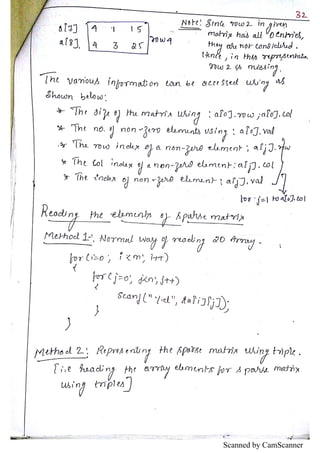 32
a[7] 4 1 15
a[8] 4 3 25 row 4
Note: Since row 2 in given
matrix has all 0 entries,
they are not considered.
Hence, in this representation
row 2 is missing.
The various information can be accessed using as
shown below:
* The size of the matrix using : a[0].row ; a[0].col
* The no. of non-zero elements using : a[0].val
* The row index of a non-zero element : a[j].row
* The col index of a non-zero element : a[j].col
* The index of non-zero element : a[j].val
for j=1 to a[0].col
Reading the elements of sparse matrix
Method 1:- Normal way of reading 2D Array.
for (i=0; i<m; i++)
{
for (j=0; j<n; j++)
scanf("%d", &a[i][j]);
}
Method 2: Representing the sparse matrix using triple.
[i.e reading the array elements for sparse matrix
using triples]
Scanned by CamScanner